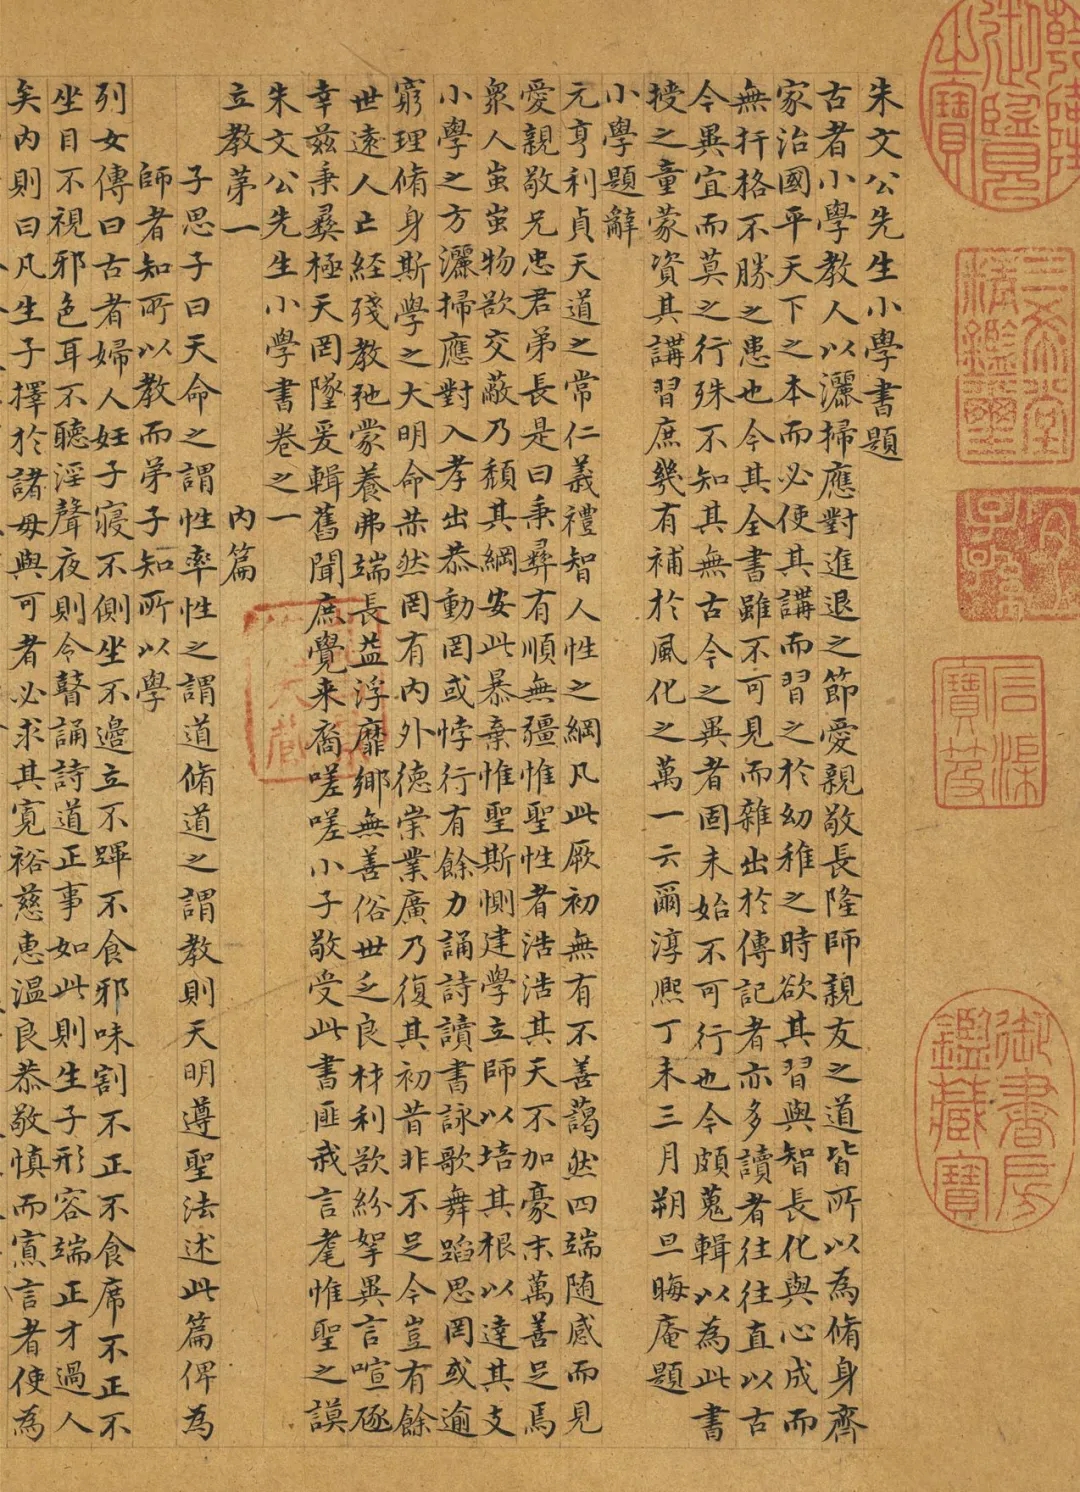 朱文公先生小學書題
古者小學教人以灑掃應對進退之節愛親敬長隆師親友之道皆所以為脩身齊
家治國平天下之本而必使其講而習之於幼稚之時欲其習與智長化與心成而
無扞格不勝之患也今其全書雖不可見而雜出於傳記者亦多讀者往往直以古
今異宜而莫之行殊不知其無古今之異者固未始不可行也今頗蒐輯以為此書
授之童蒙資其講習庶幾有補於風化之萬一云爾淳熙丁未三月朔旦晦庵題
小學題辭
元亨利貞天道之常仁義禮智人性之綱凡此厥初無有不善藹然四端随感而見
愛親敬兄忠君弟長是曰秉彝有順無疆惟聖性者浩浩其天不加豪末萬善足焉
衆人蚩蚩物欲交蔽乃頹其綱安此暴棄惟聖斯惻建學立師以培其根以達其支
小學之方灑掃應對入孝出恭動罔或悖行有餘力誦詩讀書詠歌舞蹈思罔或逾
窮理脩身斯學之大明命赫然罔有內外德崇業廣乃復其初昔非不足今豈有餘
世遠人亡経殘教弛蒙養弗端長益浮靡鄉無善俗世乏良材利欲紛挐異言喧豗
幸兹秉彝極天罔墜爰輯舊聞庶覺来裔嗟嗟小子敬受此書匪我言耄惟聖之謨
朱文公先生小學書卷之一
立教苐一 內篇
子思子曰天命之謂性率性之謂道脩道之謂教則天明遵聖法述此篇俾為
師者知所以教而弟子知所以學
列女傳曰古者婦人妊子寢不側坐不邊立不蹕不食邪味割不正不食席不正不
坐目不視邪色耳不聽淫聲夜則令瞽誦詩道正事如此則生子形容端正才過人
矣內則曰凡生子擇於諸母與可者必求其寬裕慈惠溫良恭敬慎而寡言者使為
乾隆御覽之寶
三希堂精鑑璽
宜子孫
石渠寶笈
御書房鑑藏寶